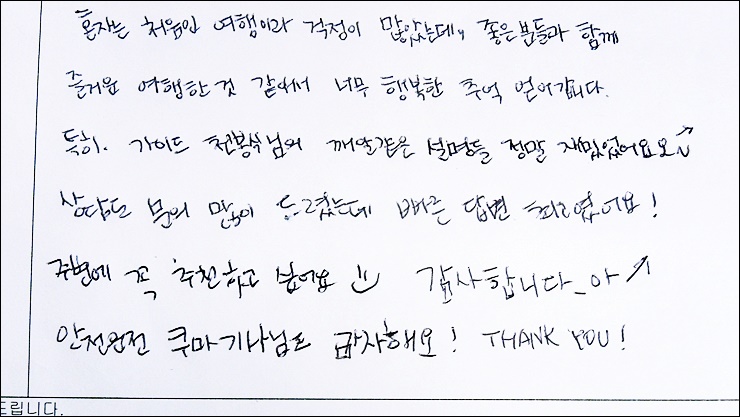 혼자는 처음인 여행이라 걱정이 많았는데, 좋은분들과 함께
즐거운 여행한것 같아서 너무 행복한 추억 얻어갑니다.
특히. 가이드 천봉수님의 깨알같은 설명들 정말 재밌었어요오~
상담도 문의 많이 드렸는데 빠른 답변 최고였어요!
주변에 꼭 추천하고 싶어요 감사합니다_아
안전운전 쿠마기사님도 감사해요! THANK YOU!
드립니다.